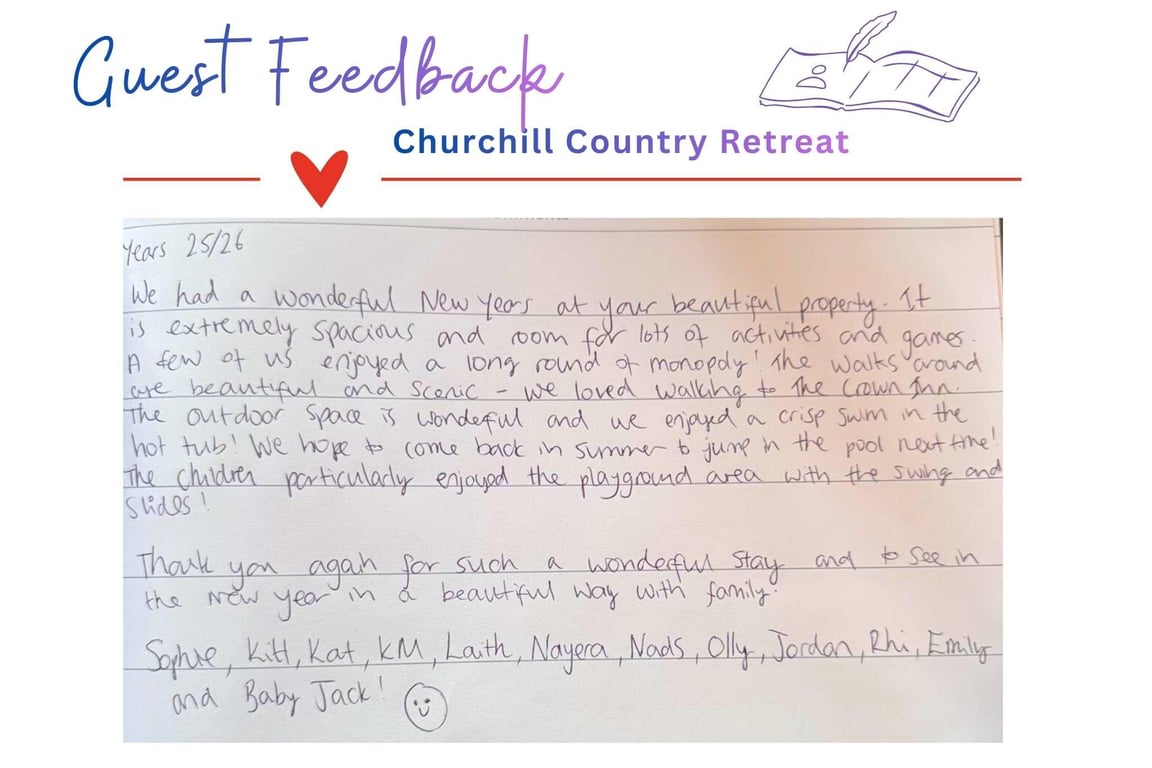 Guest Feedback
Churchill Country Retreat
Years 25/26
We had a wonderful New Years at your beautiful property. It
is extremely spacious and room for lots of activities and games.
A few of us enjoyed a long round of monopoly! The walks around
are beautiful and scenic - we loved walking to The Crown Inn.
The outdoor space is wondeful and we enjoyed a crisp swim in the
hot tub! We hope to come back in summer to jump in the pool next time!
The children particularly enjoyed the playground area with the swing and
slides!
Thank you again for such a wonderful stay and to see in
the New Year in a beautiful way with family.
Sophie, Kitt, Kat, KM, Laith, Nayera, Nads, Olly, Jordan, Rhi, Emily
and Baby Jack!